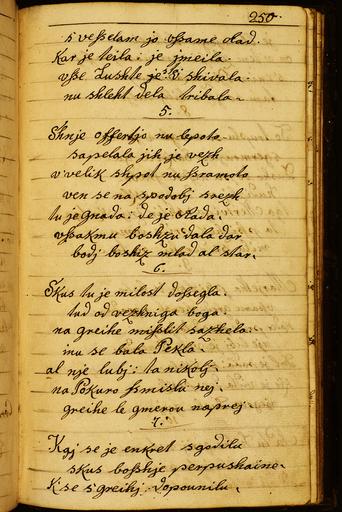 250.
s'veßelam jo vßame vlad.
Kar je teila: je jmeila.
vße Lushte je s'shivala.
nu shleht dela tribala.
5.
Shnje offertjo nu lepoto
sapelala jih je vezh
v'velik shpot nu ßramoto
ven se na spodobj srezh
tu je gnada: de je Rada.
vßakmu boshzu dala dar
bodj boshiz mlad al star.
6.
Skus tu je milost doßegla.
tud od vezhniga boga
na greihe mißlit sazhela.
inu se bala Pekla.
al nje lubj: ta nikolj.
na Pokuro ßmisla nej.
greihe le gmerou naprej.
7.
Kaj se je enkret sgodilu
skus boshje perpushaine.
K'se s'greihj dopounilu.